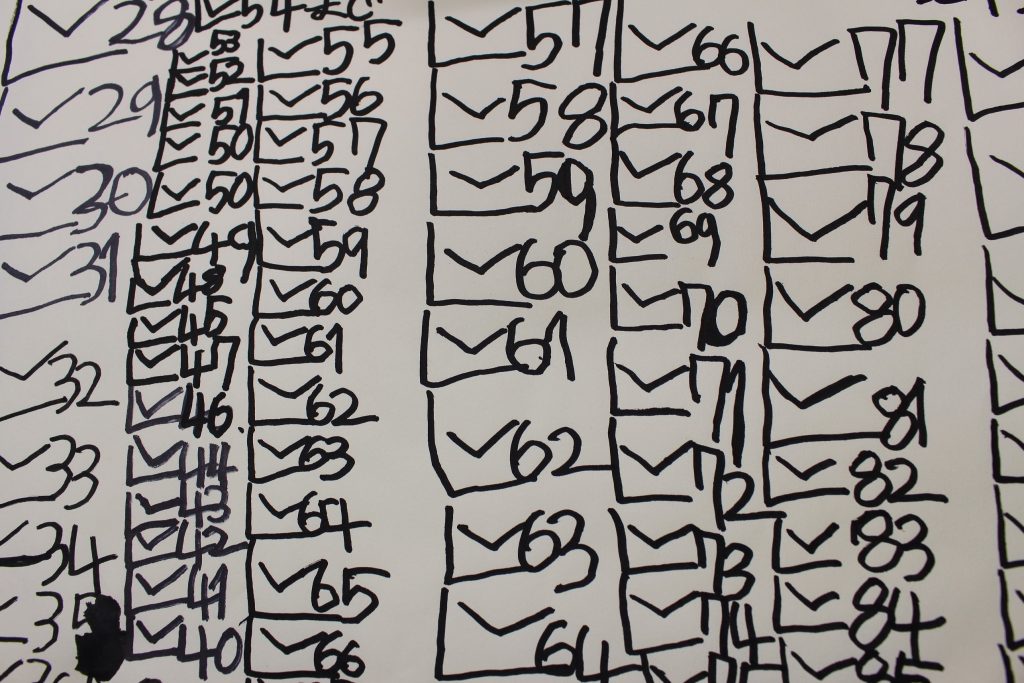 28
29
30
31
32
33
34
54まで
53
52
51
50
50
49
48
45
47
46
44
43
42
41
40
55
56
57
58
59
60
61
62
63
64
65
66
57
58
59
60
61
62
63
64
66
67
68
69
70
71
72
73
74
77
78
79
80
81
82
83
84
85